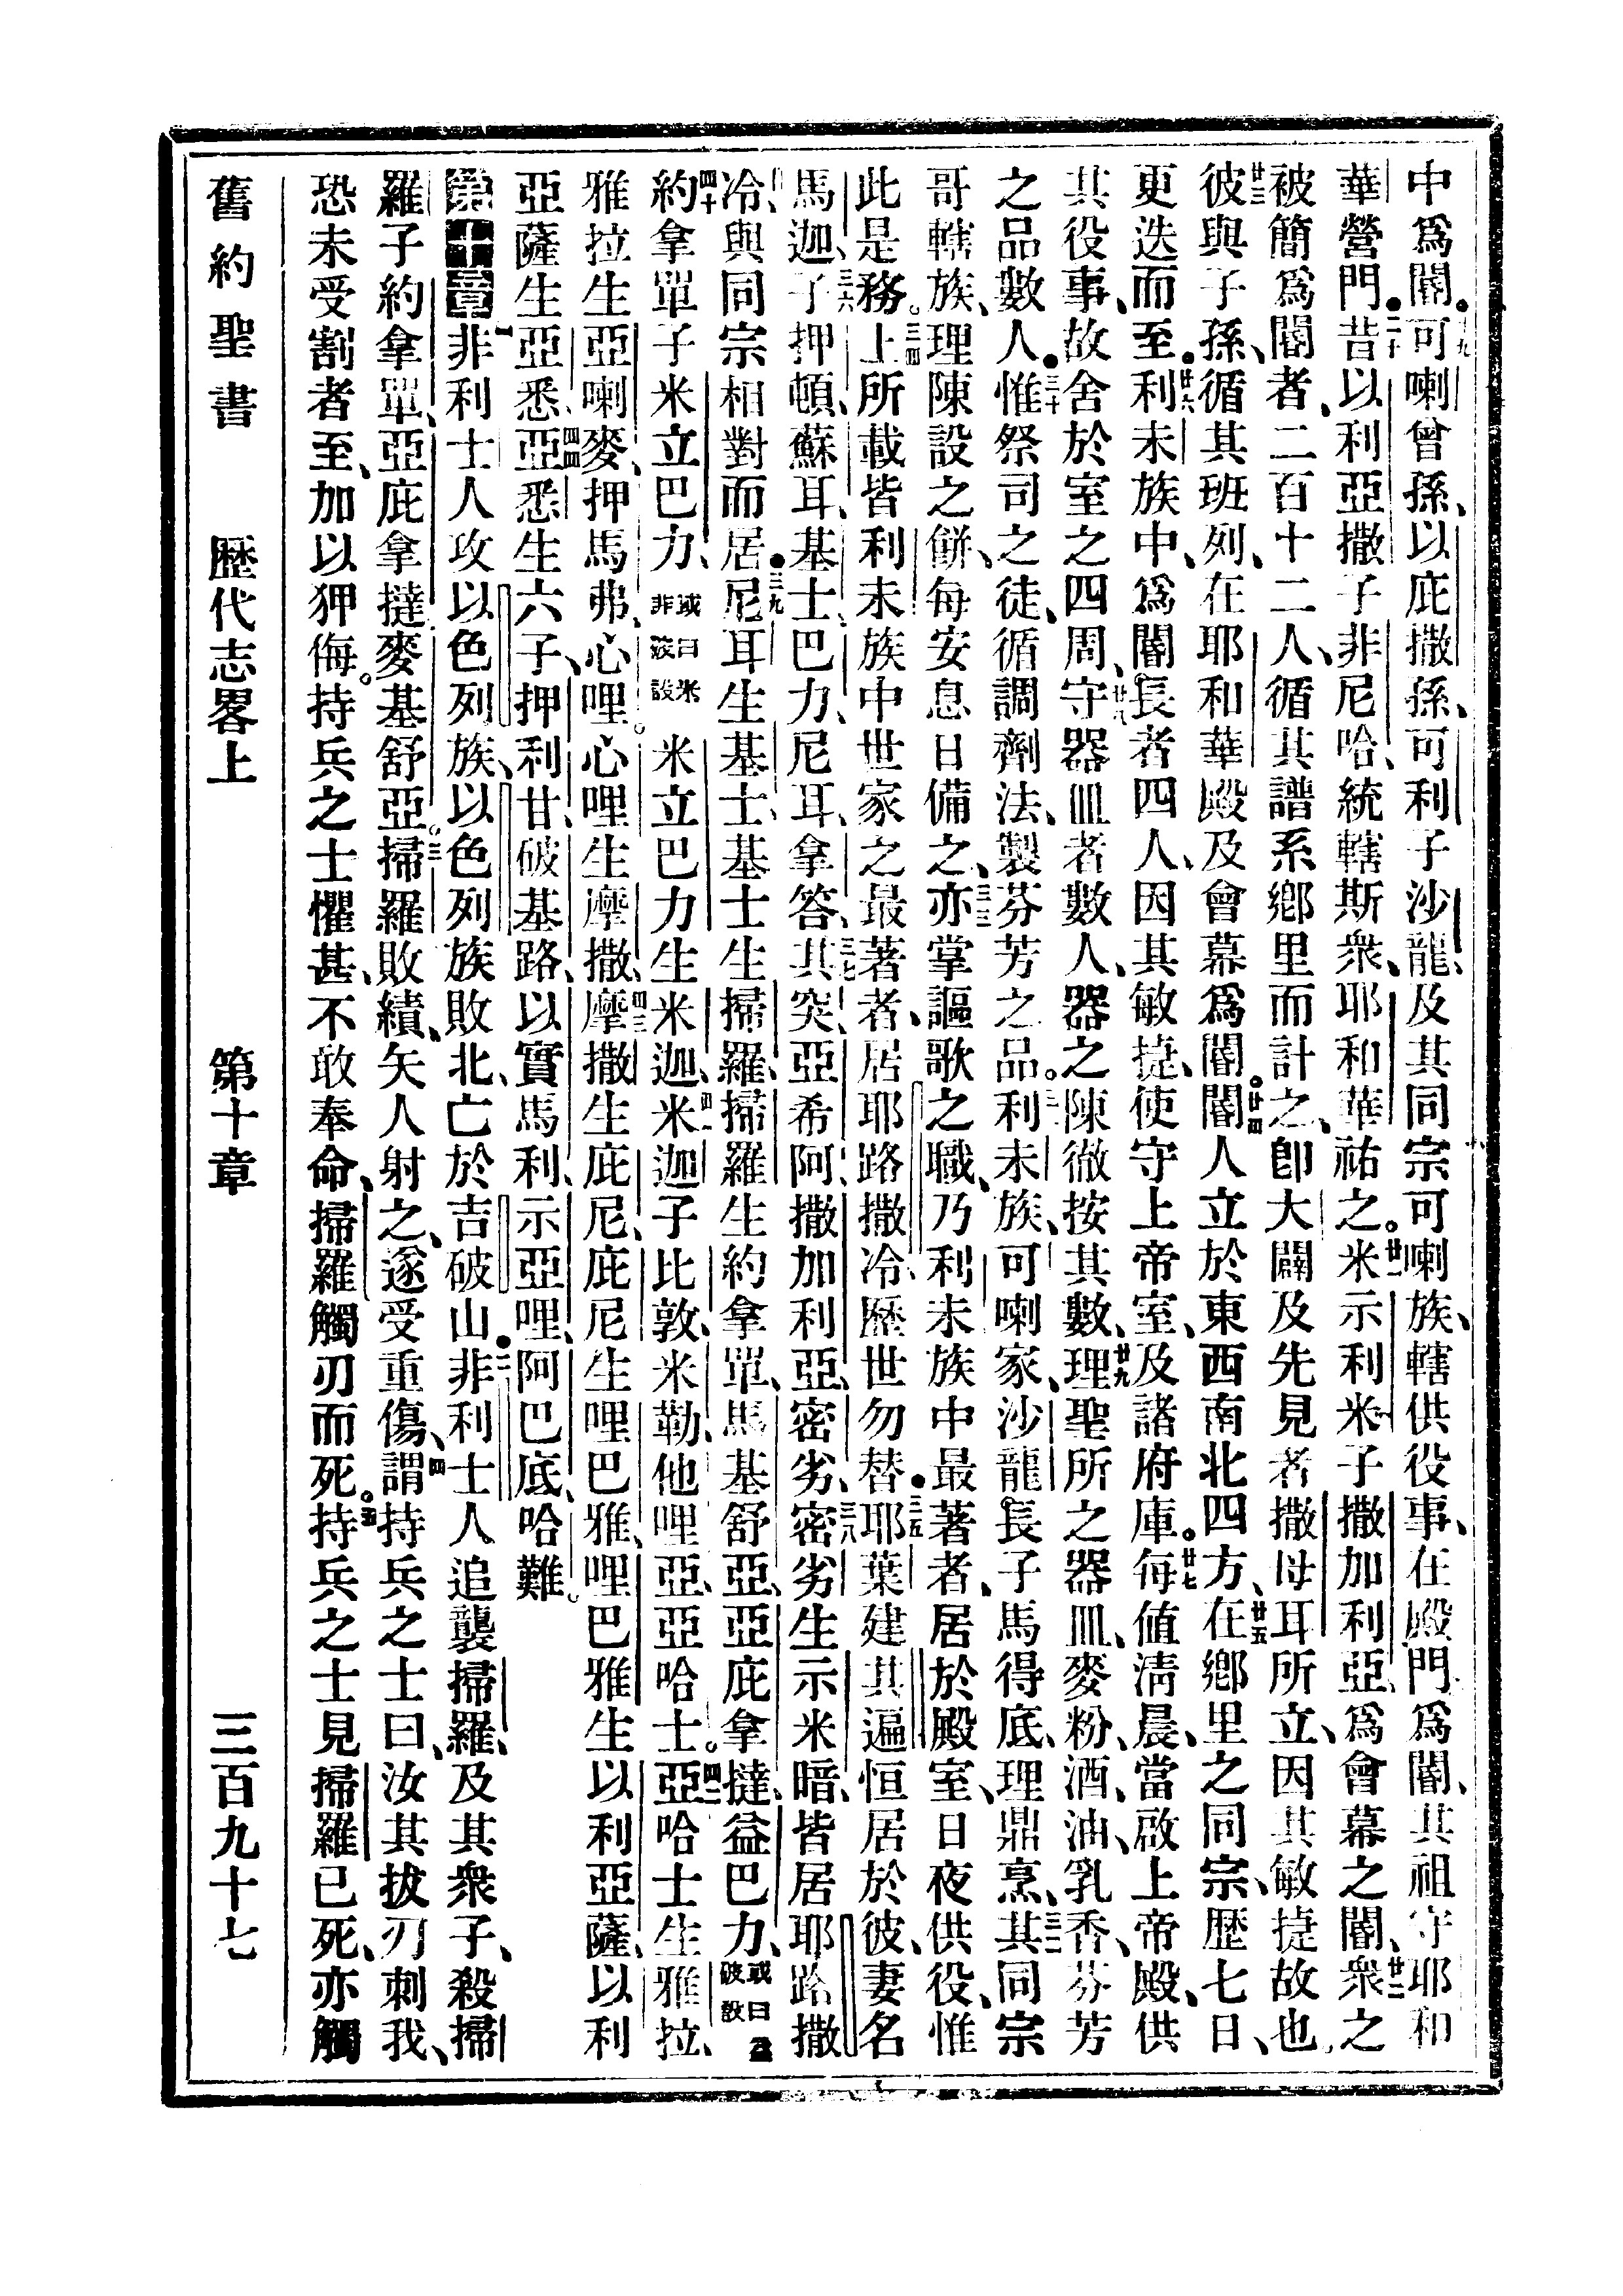 中爲閽。十九可喇曾孫、以庇撒孫、可利子沙龍、及其同宗可喇族、轄供役事、在殿門爲閽、其祖守耶和
華營門。二十昔以利亞撒子非尼哈、統轄斯衆、耶和華祐之。廿一米示利米子撒加利亞、爲會幕之閽、廿二衆之
被簡爲閽者、二百十二人、循其譜系鄉里而計之、卽大闢及先見者撒母耳所立、因其敏捷故也。
廿三彼與子孫、循其班列、在耶和華殿及會幕爲閽。廿四閽人立於東西南北四方、廿五在鄉里之同宗、歷七日、
更迭而至。廿六利未族中、爲閽長者四人、因其敏捷、使守上帝室、及諸府庫。廿七每值淸晨、當啟上帝殿、供
其役事、故舍於室之四周、廿八守器皿者數人、器之陳徹、按其數、廿九理聖所之器皿、麥粉、酒、油、乳香、芬芳
之品數人。三十惟祭司之徒、循調劑法、製芬芳之品。三一利未族、可喇家、沙龍長子馬得底、理鼎烹、三二其同宗
哥轄族、理陳設之餅、每安息日備之、三三亦掌謳歌之職、乃利未族中最著者、居於殿室、日夜供役、惟
此是務。三四上所載皆利未族中世家之最著者、居耶路撒冷、歷世勿替。三五耶葉建其遍恒居於彼、妻名
馬迦、三六子押頓、蘇耳、基士、巴力、尼耳、拿答、三七其突、亞希阿、撒加利亞、密劣、三八密劣生示米暗、皆居耶路撒
冷、與同宗相對而居。三九尼耳生基士、基士生掃羅、掃羅生約拿單、馬基舒亞、亞庇拿撻、益巴力、或曰益破設
四十約拿單子米立巴力、或曰米非破設。米立巴力生米迦、四一米迦子比敦、米勒、他哩亞、亞哈士。四二亞哈士生雅拉、
雅拉生亞喇麥、押馬弗、心哩。心哩生摩撒、四三摩撒生庇尼、庇尼生哩巴雅、哩巴雅生以利亞薩、以利
亞薩生亞悉、四四亞悉生六子、押利甘、破基路、以實馬利、示亞哩、阿巴底、哈難。
第十章一非利士人攻以色列族、以色列族敗北、亡於吉破山。二非利士人追襲掃羅、及其衆子、殺掃
羅子約拿單、亞庇拿撻、麥基舒亞。三掃羅敗績、矢人射之、遂受重傷、四謂持兵之士曰、汝其拔刃刺我、
恐未受割者至、加以狎侮。持兵之士懼甚、不敢奉命、掃羅觸刃而死。五持兵之士見掃羅已死、亦觸
舊約聖書　歷代志畧上　第十章　三百九十七